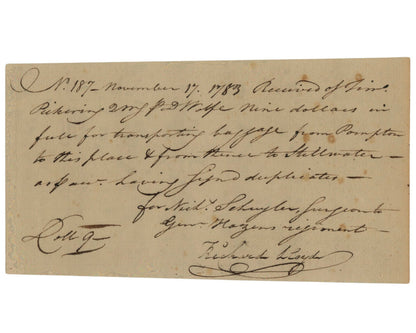 No. 187 – November 17. 1783 Received of Timo.
Pickering QMG pr. D Wolfe Nine dollars in
full for transporting baggage from Pompton
to this place & from thence to Stillwater –
as pr acct. having Sign'd duplicates –
for Nichs. Schuyler Surgeon to
Genl. Hazens regiment –
Doll 9
Richard Lloyd